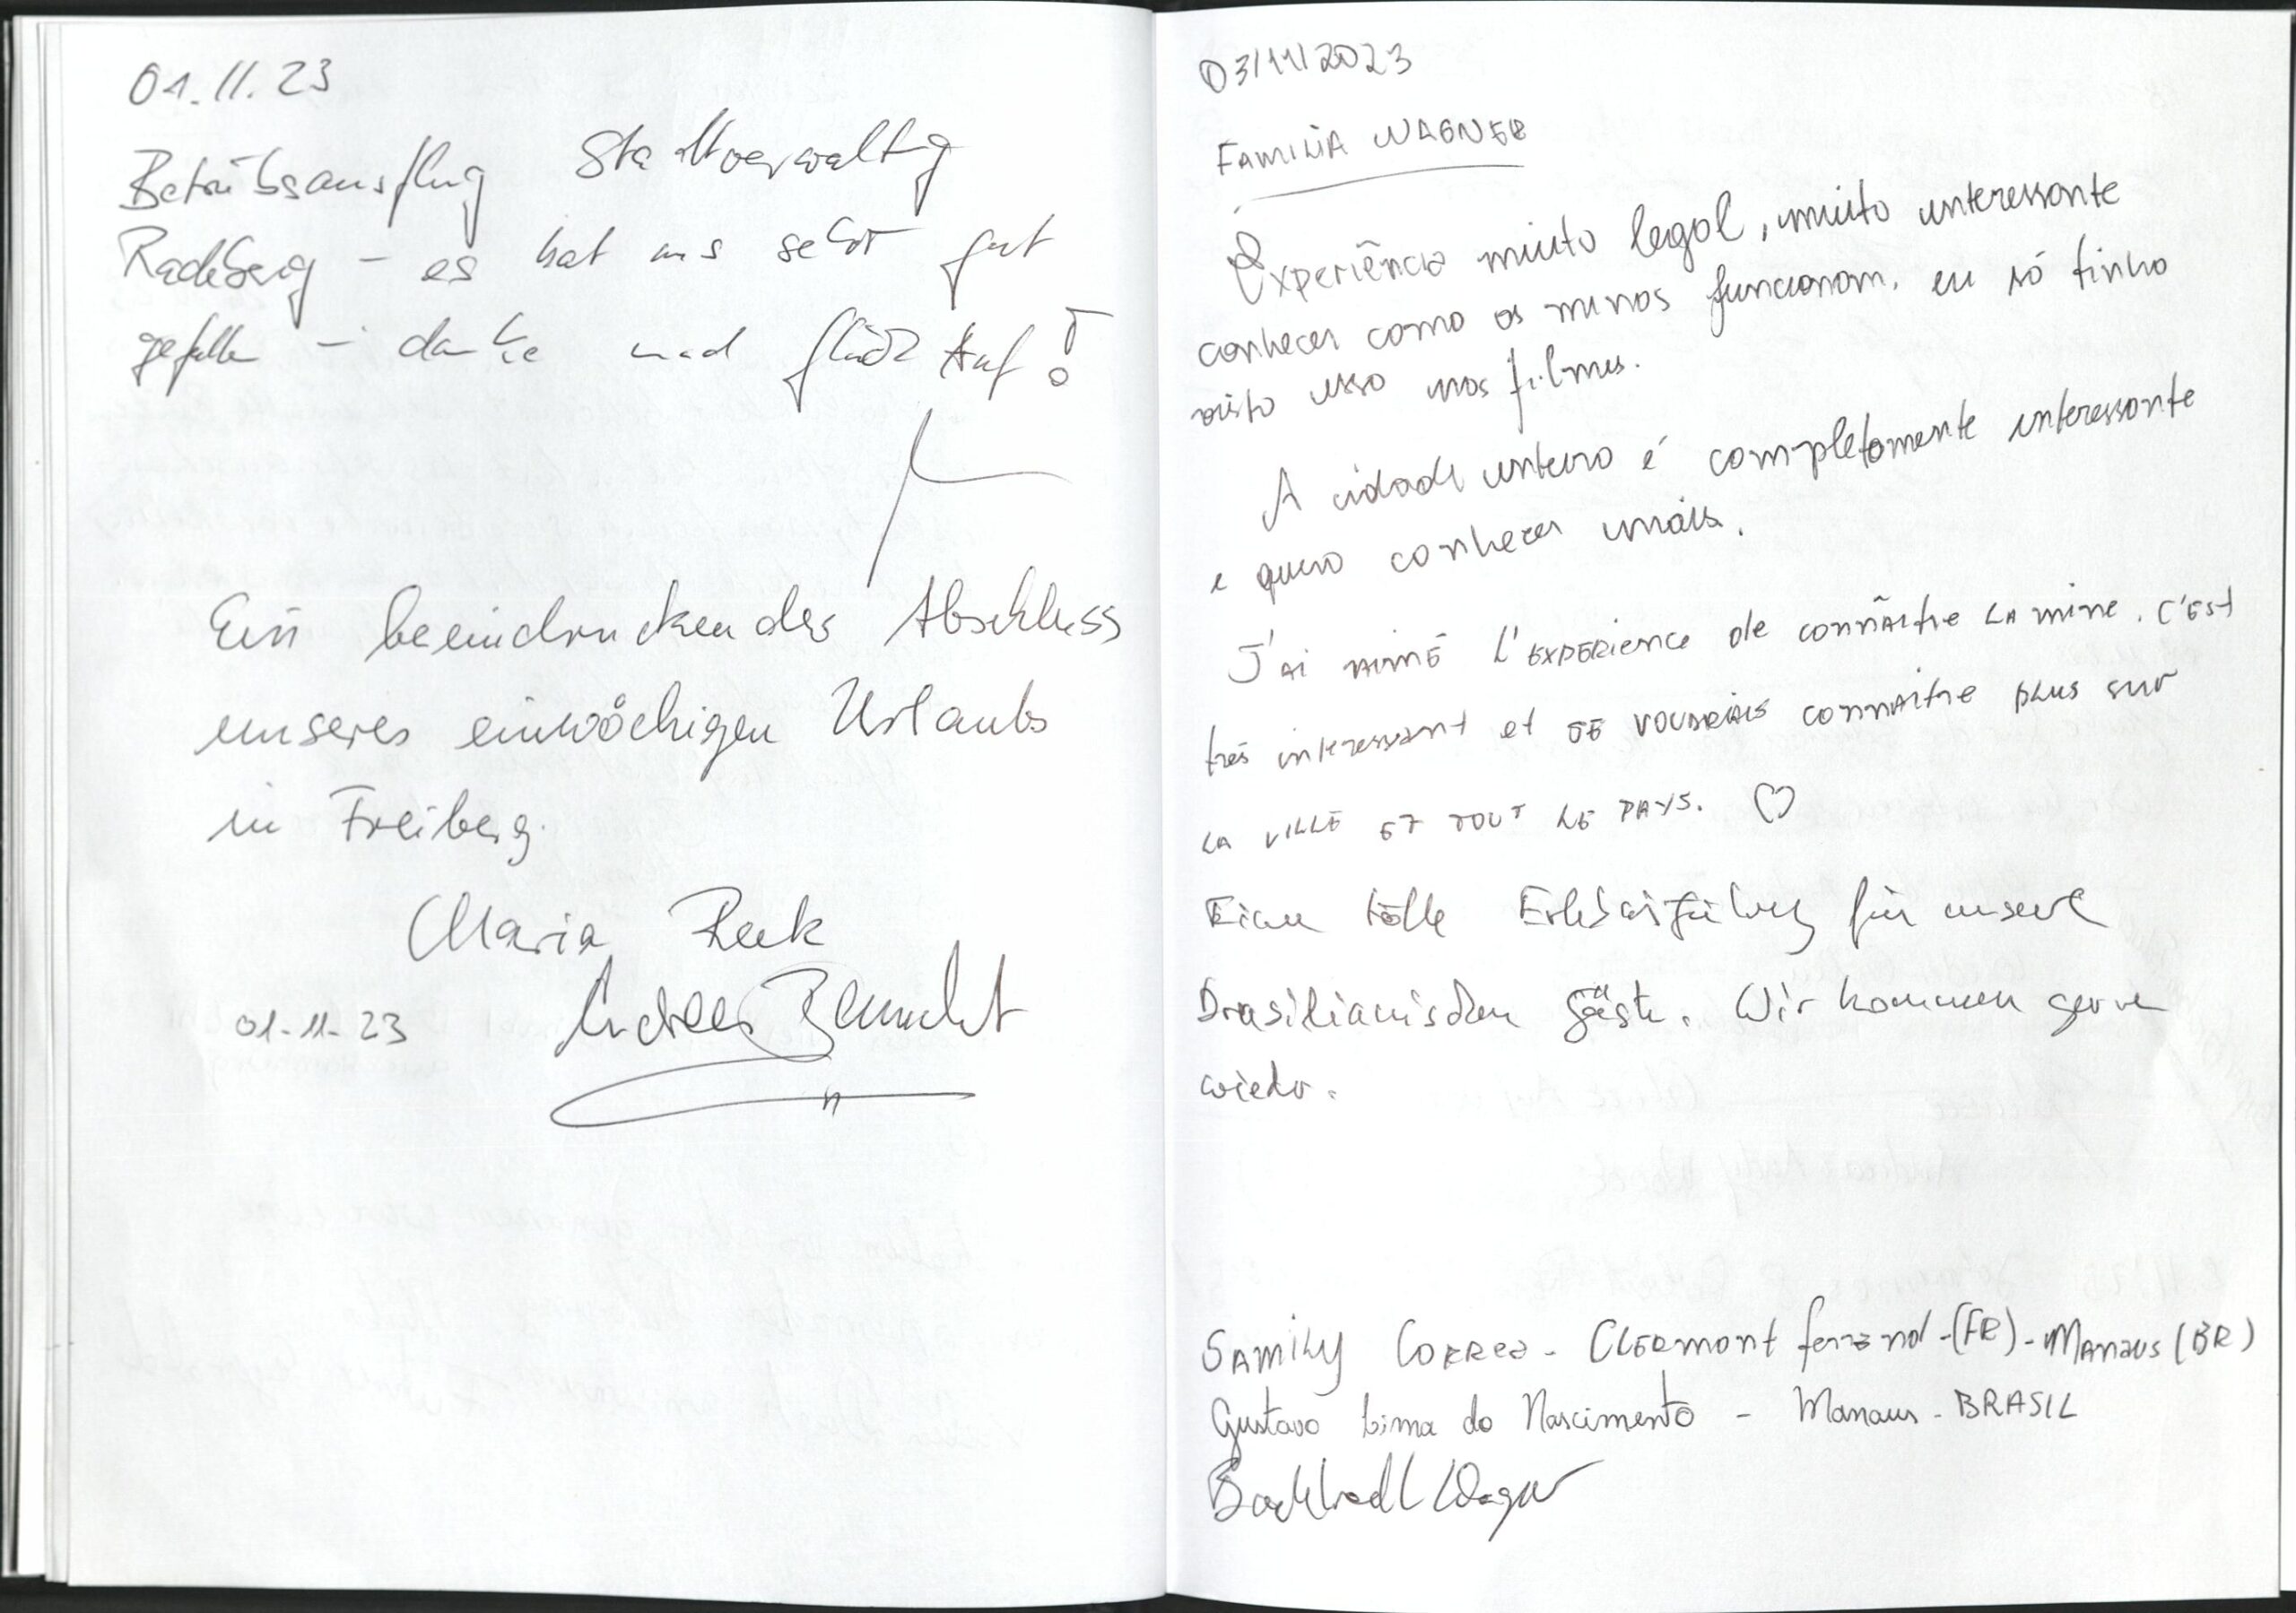 01.11.23
Betriebsausflug Stadtverwaltung
Radeberg - es hat uns sehr gut
gefallen - danke und Glück Auf!
Ein beeindruckendes Abschluss
unseres einwöchigen Urlaubs
in Freiberg.
Maria Reek
01.11.23 Andreas
03/11/2023
FAMILIA WAGNER
Experiência muito legal, muito interessante
conhecer como as minas funcionam, eu só tinha
visto isso nos filmes.
A cidade inteira é completamente interessante
e quero conhecer mais.
J'ai aimé l'experience de connaître la mine. C'est
très interessant et je voudrais connaitre plus sur
LA VILLE ET TOUT LE PAYS. ♡
Eine tolle Erlebnisführung für unsere
Brasilianischen Gäste. Wir kommen gerne
wieder.
SAMILY CORREA - CLERMONT ferrand - (FR) - MANAUS (BR)
Gustavo Lima do Nascimento - Manaus - BRASIL
Wagner